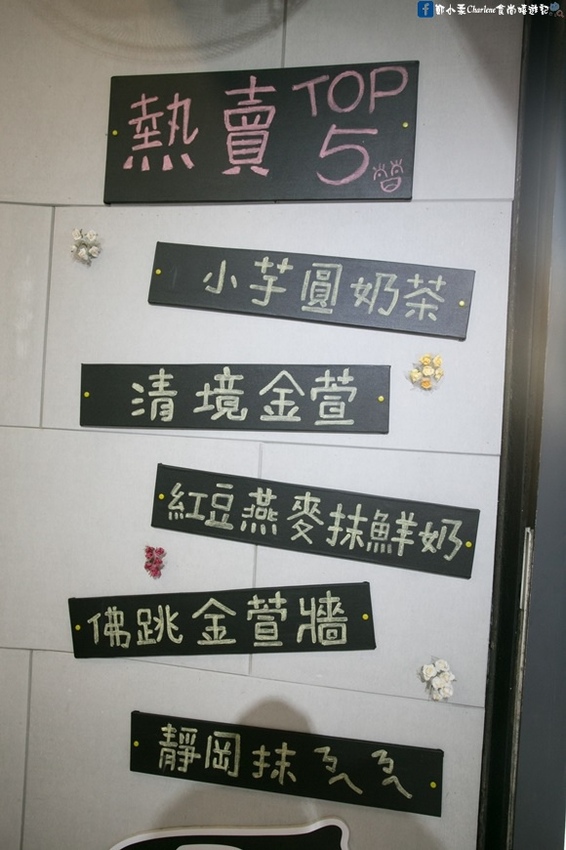 鄧小柔Charlene食尚嬉遊記
熱賣TOP
5
小芋圓奶茶
清境金萱
紅豆燕麥抹鮮奶
佛跳金萱牆
靜岡抹ㄋㄟㄋㄟ